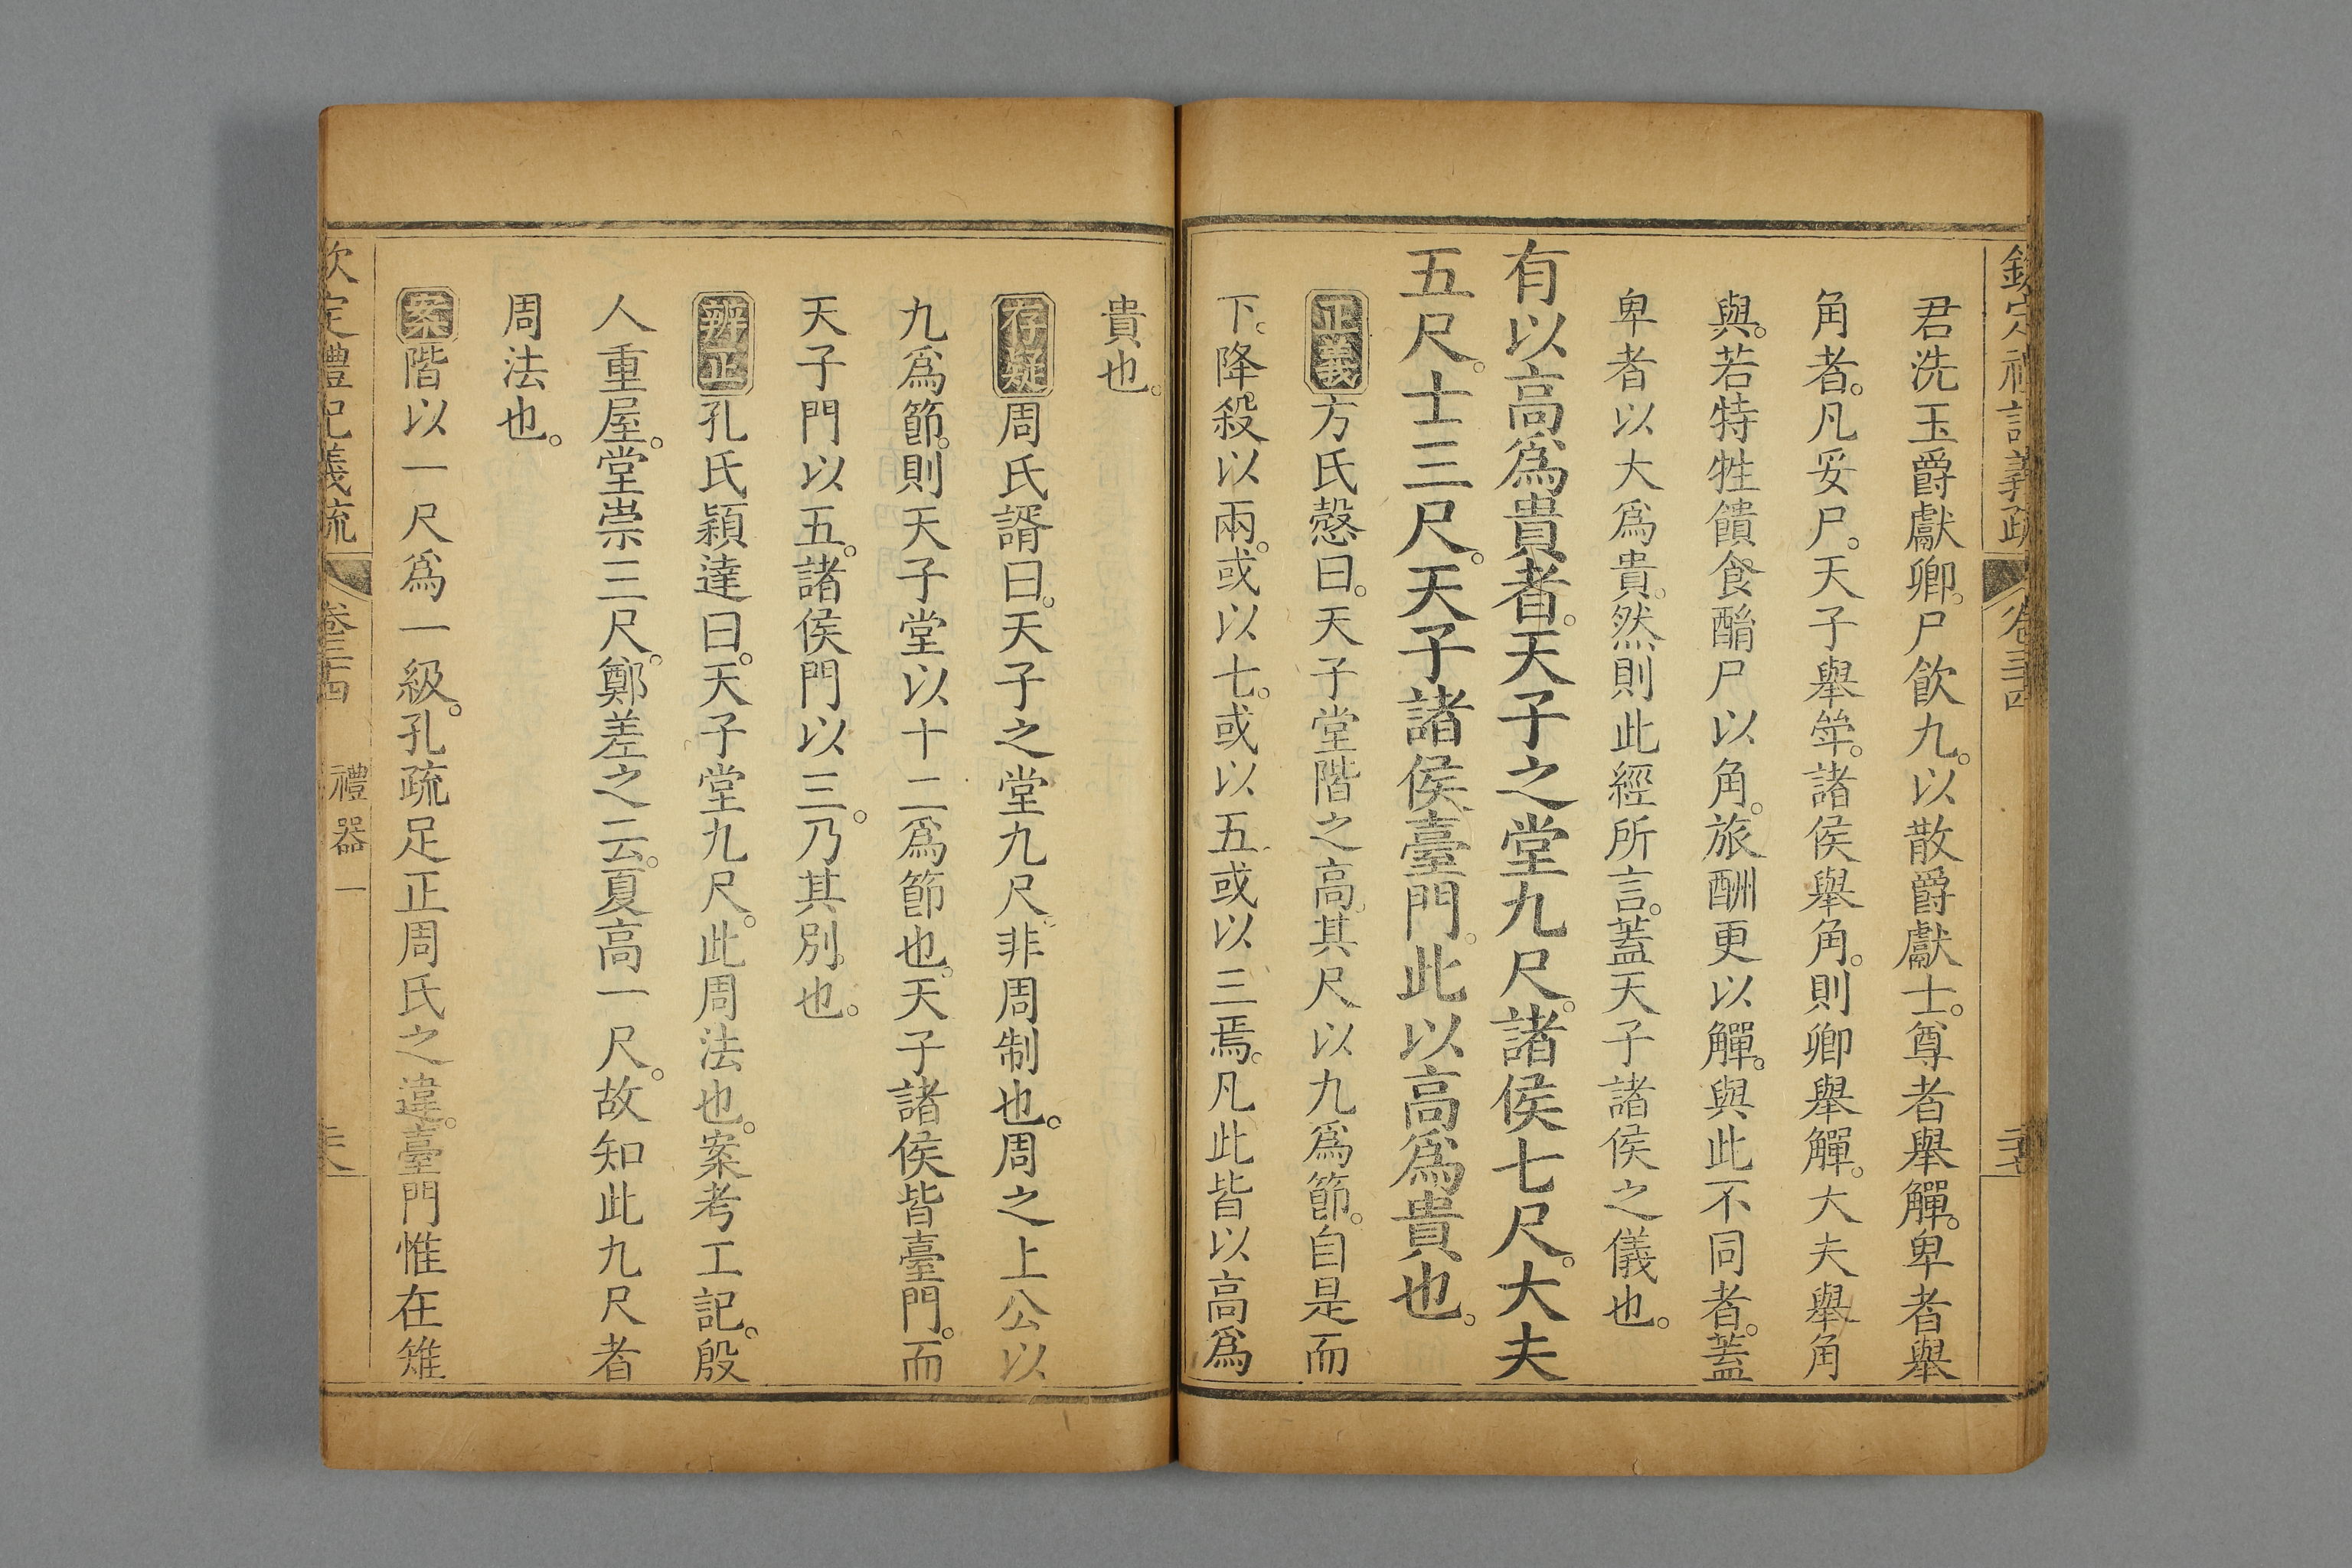 欽定禮記義疏 卷三十四
君洗玉爵獻卿。尸飲九。以散爵獻士。尊者舉觶。卑者舉
角者。凡妥尸。天子舉斝。諸侯舉角。則卿舉觶。大夫舉角
與。若特牲饋食酳尸以角。旅酬更以觶。與此不同者。蓋
卑者以大為貴。然則此經所言。蓋天子諸侯之儀也。
有以高為貴者。天子之堂九尺。諸侯七尺。大夫
五尺。士三尺。天子諸侯臺門。此以高為貴也。
正義方氏慤曰。天子堂階之高。其尺以九為節。自是而
下。降殺以兩。或以七。或以五或以三焉。凡此皆以高為
貴也。
存疑周氏諝曰。天子之堂九尺。非周制也。周之上公以
九為節。則天子堂以十二為節也。天子諸侯皆臺門。而
天子門以五。諸侯門以三。乃其別也。
辨正孔氏穎達曰。天子堂九尺。此周法也。案考工記。殷
人重屋。堂崇三尺。鄭差之云。夏高一尺。故知此九尺者
周法也。
案階以一尺為一級。孔疏足正周氏之違。臺門惟在雉
欽定禮記義疏 卷三十四 禮器一